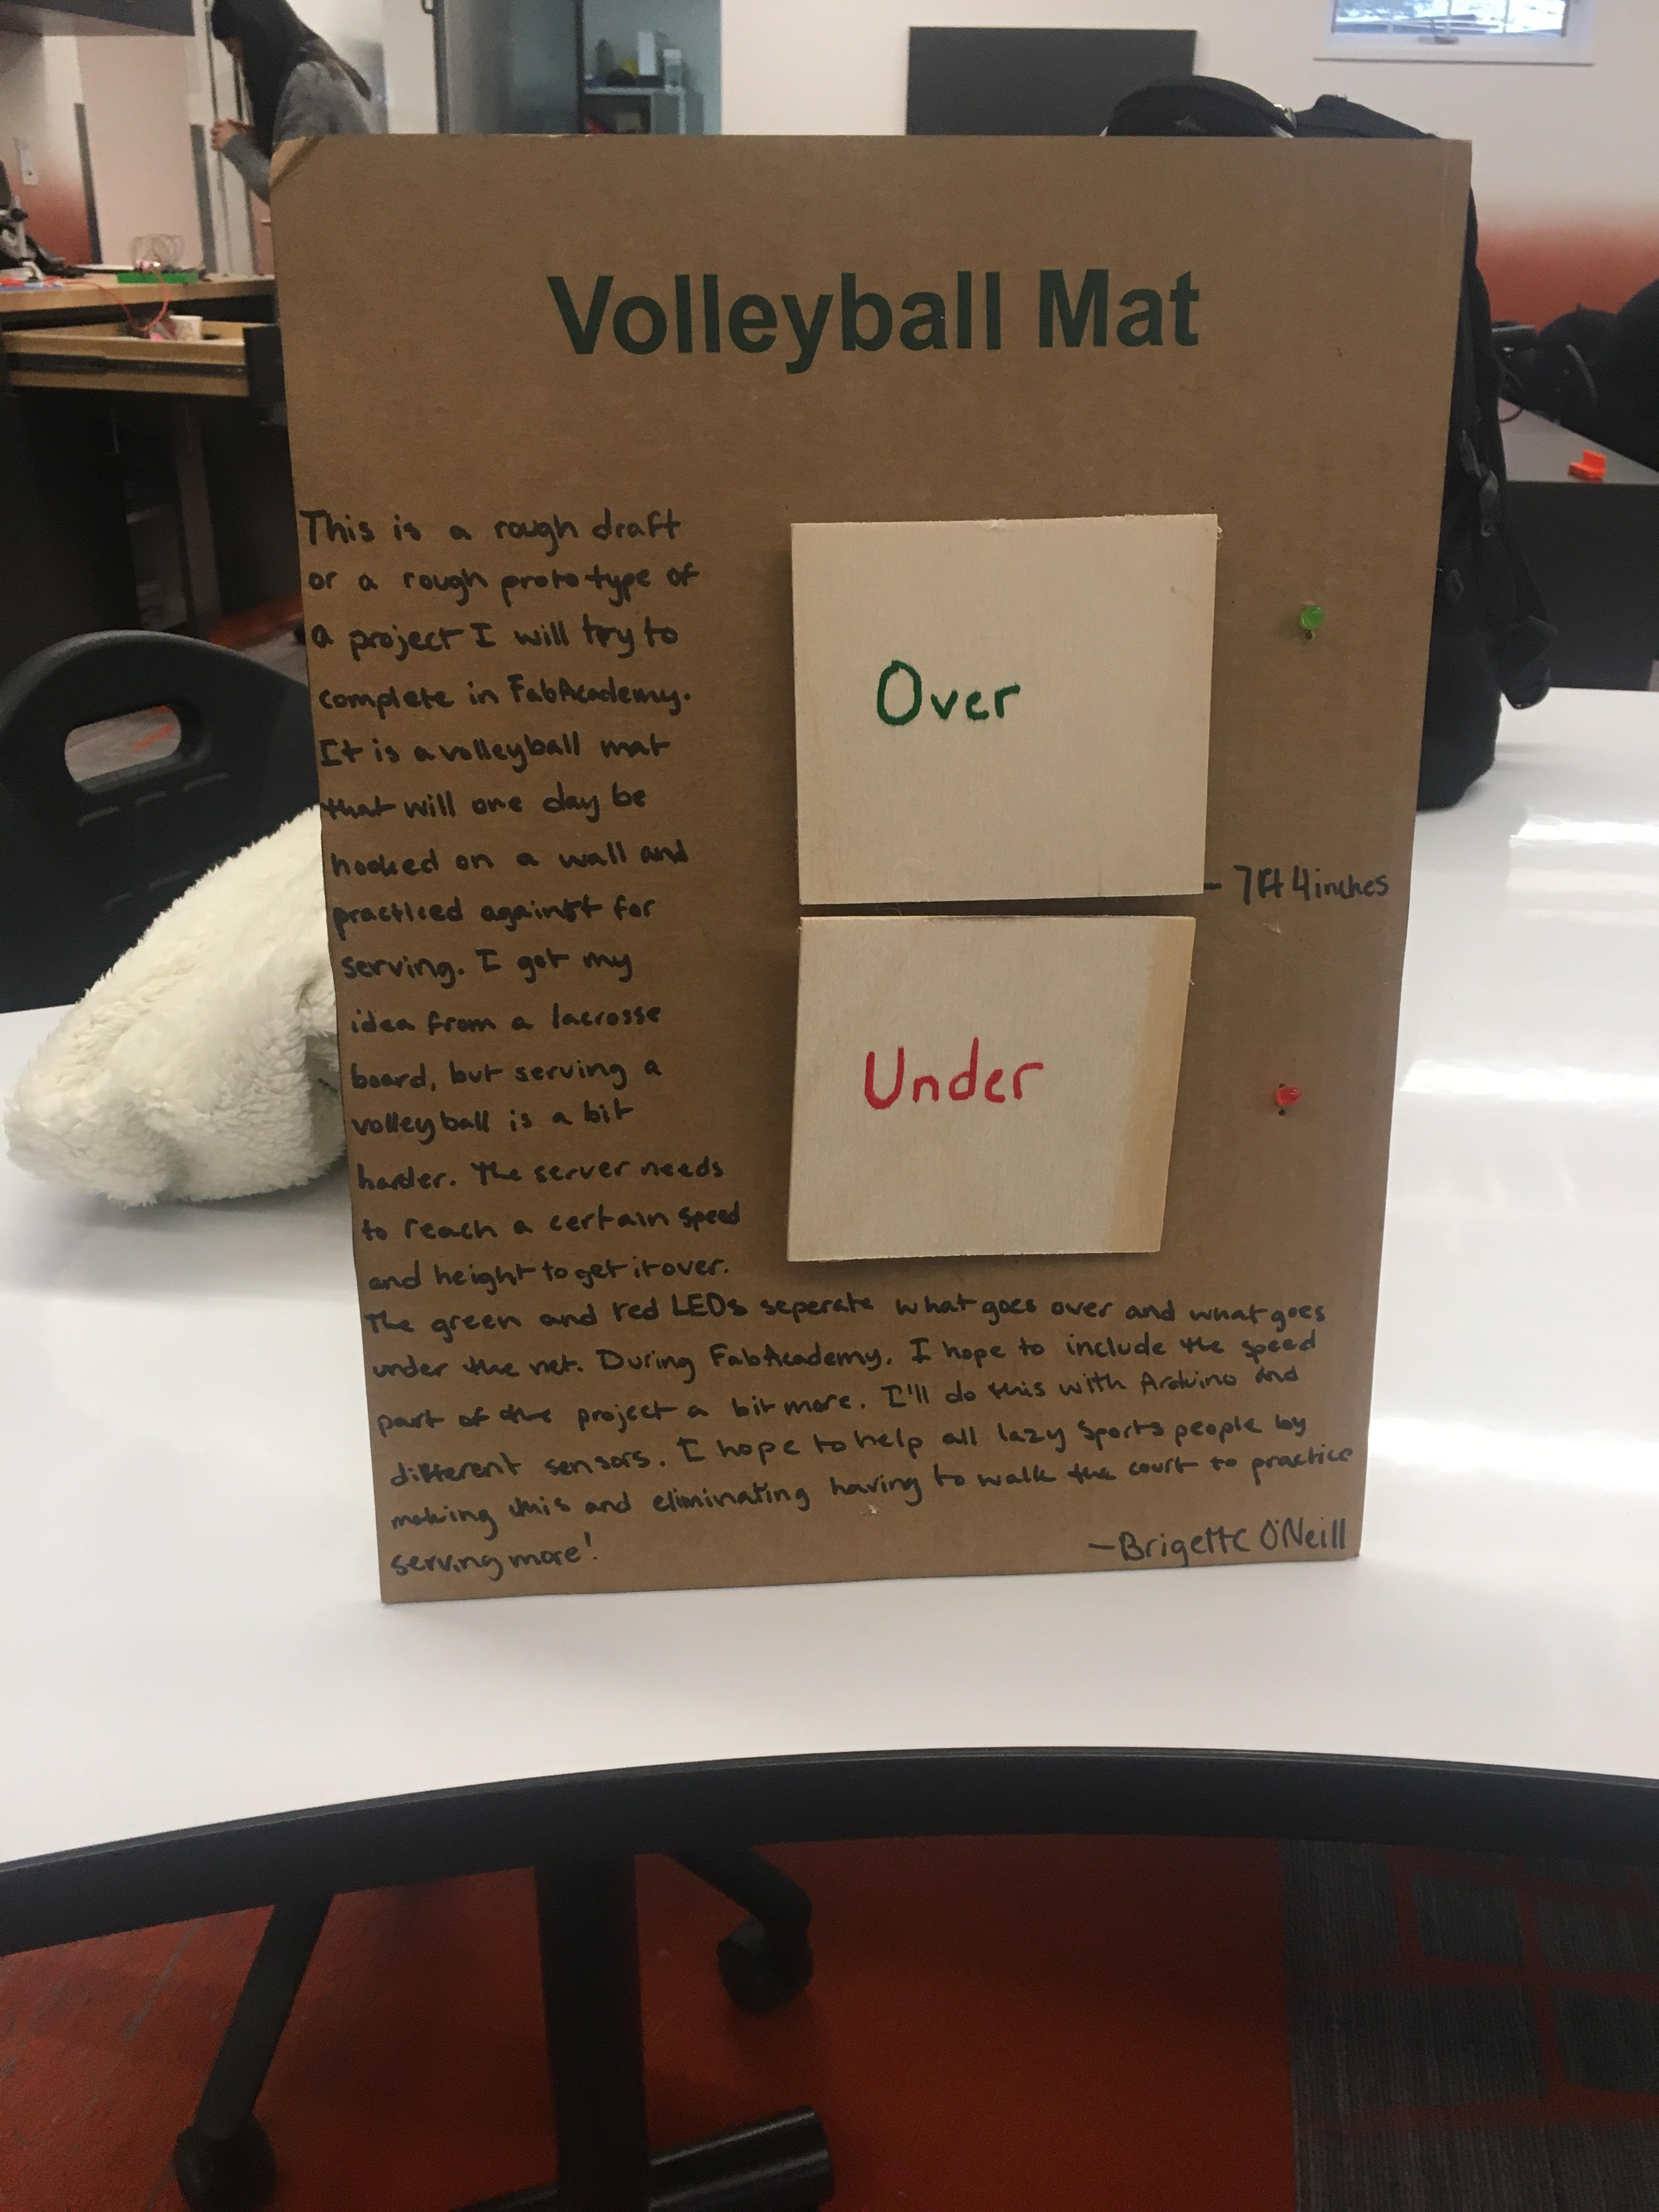 Volleyball Mat
This is a rough draft
or a rough prototype of
a project I will try to
complete in FabAcademy.
It is a volleyball mat
that will one day be
hooked on a wall and
practiced against for
serving. I got my
idea from a lacrosse
board, but serving a
volleyball is a bit
harder. The server needs
to reach a certain speed
and height to get it over.
The green and red LEDs seperate what goes over and what goes
under the net. During FabAcademy, I hope to include the speed
part of the project a bit more. I'll do this with Arduino and
different sensors. I hope to help all lazy sports people by
making this and eliminating having to walk the court to practice
serving more!
Over
7ft 4inches
Under
-Brigette O'Neill